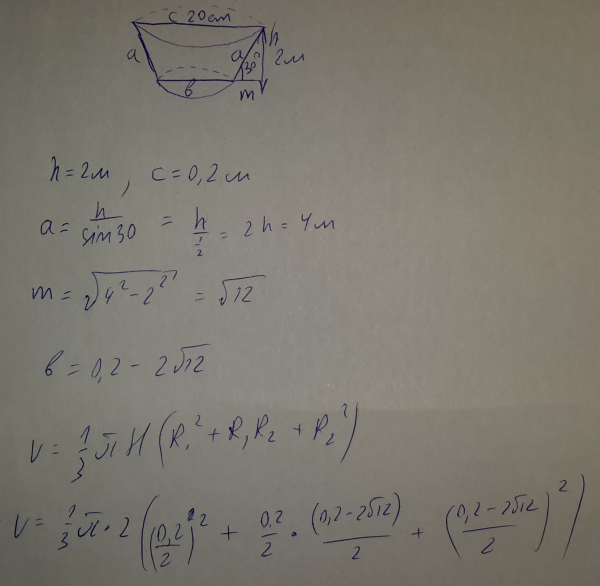 c 20см
h
a
a
30°
2м
в
m
h = 2м , c = 0,2 см
a = h/sin30 = h/(1/2) = 2h = 4м
m = √(4² - 2²) = √12
в = 0,2 - 2√12
V = 1/3 π H (R₁² + R₁R₂ + R₂²)
V = 1/3 π · 2 ((0,2/2)² + 0,2/2 · (0,2 - 2√12)/2 + ((0,2 - 2√12)/2)²)